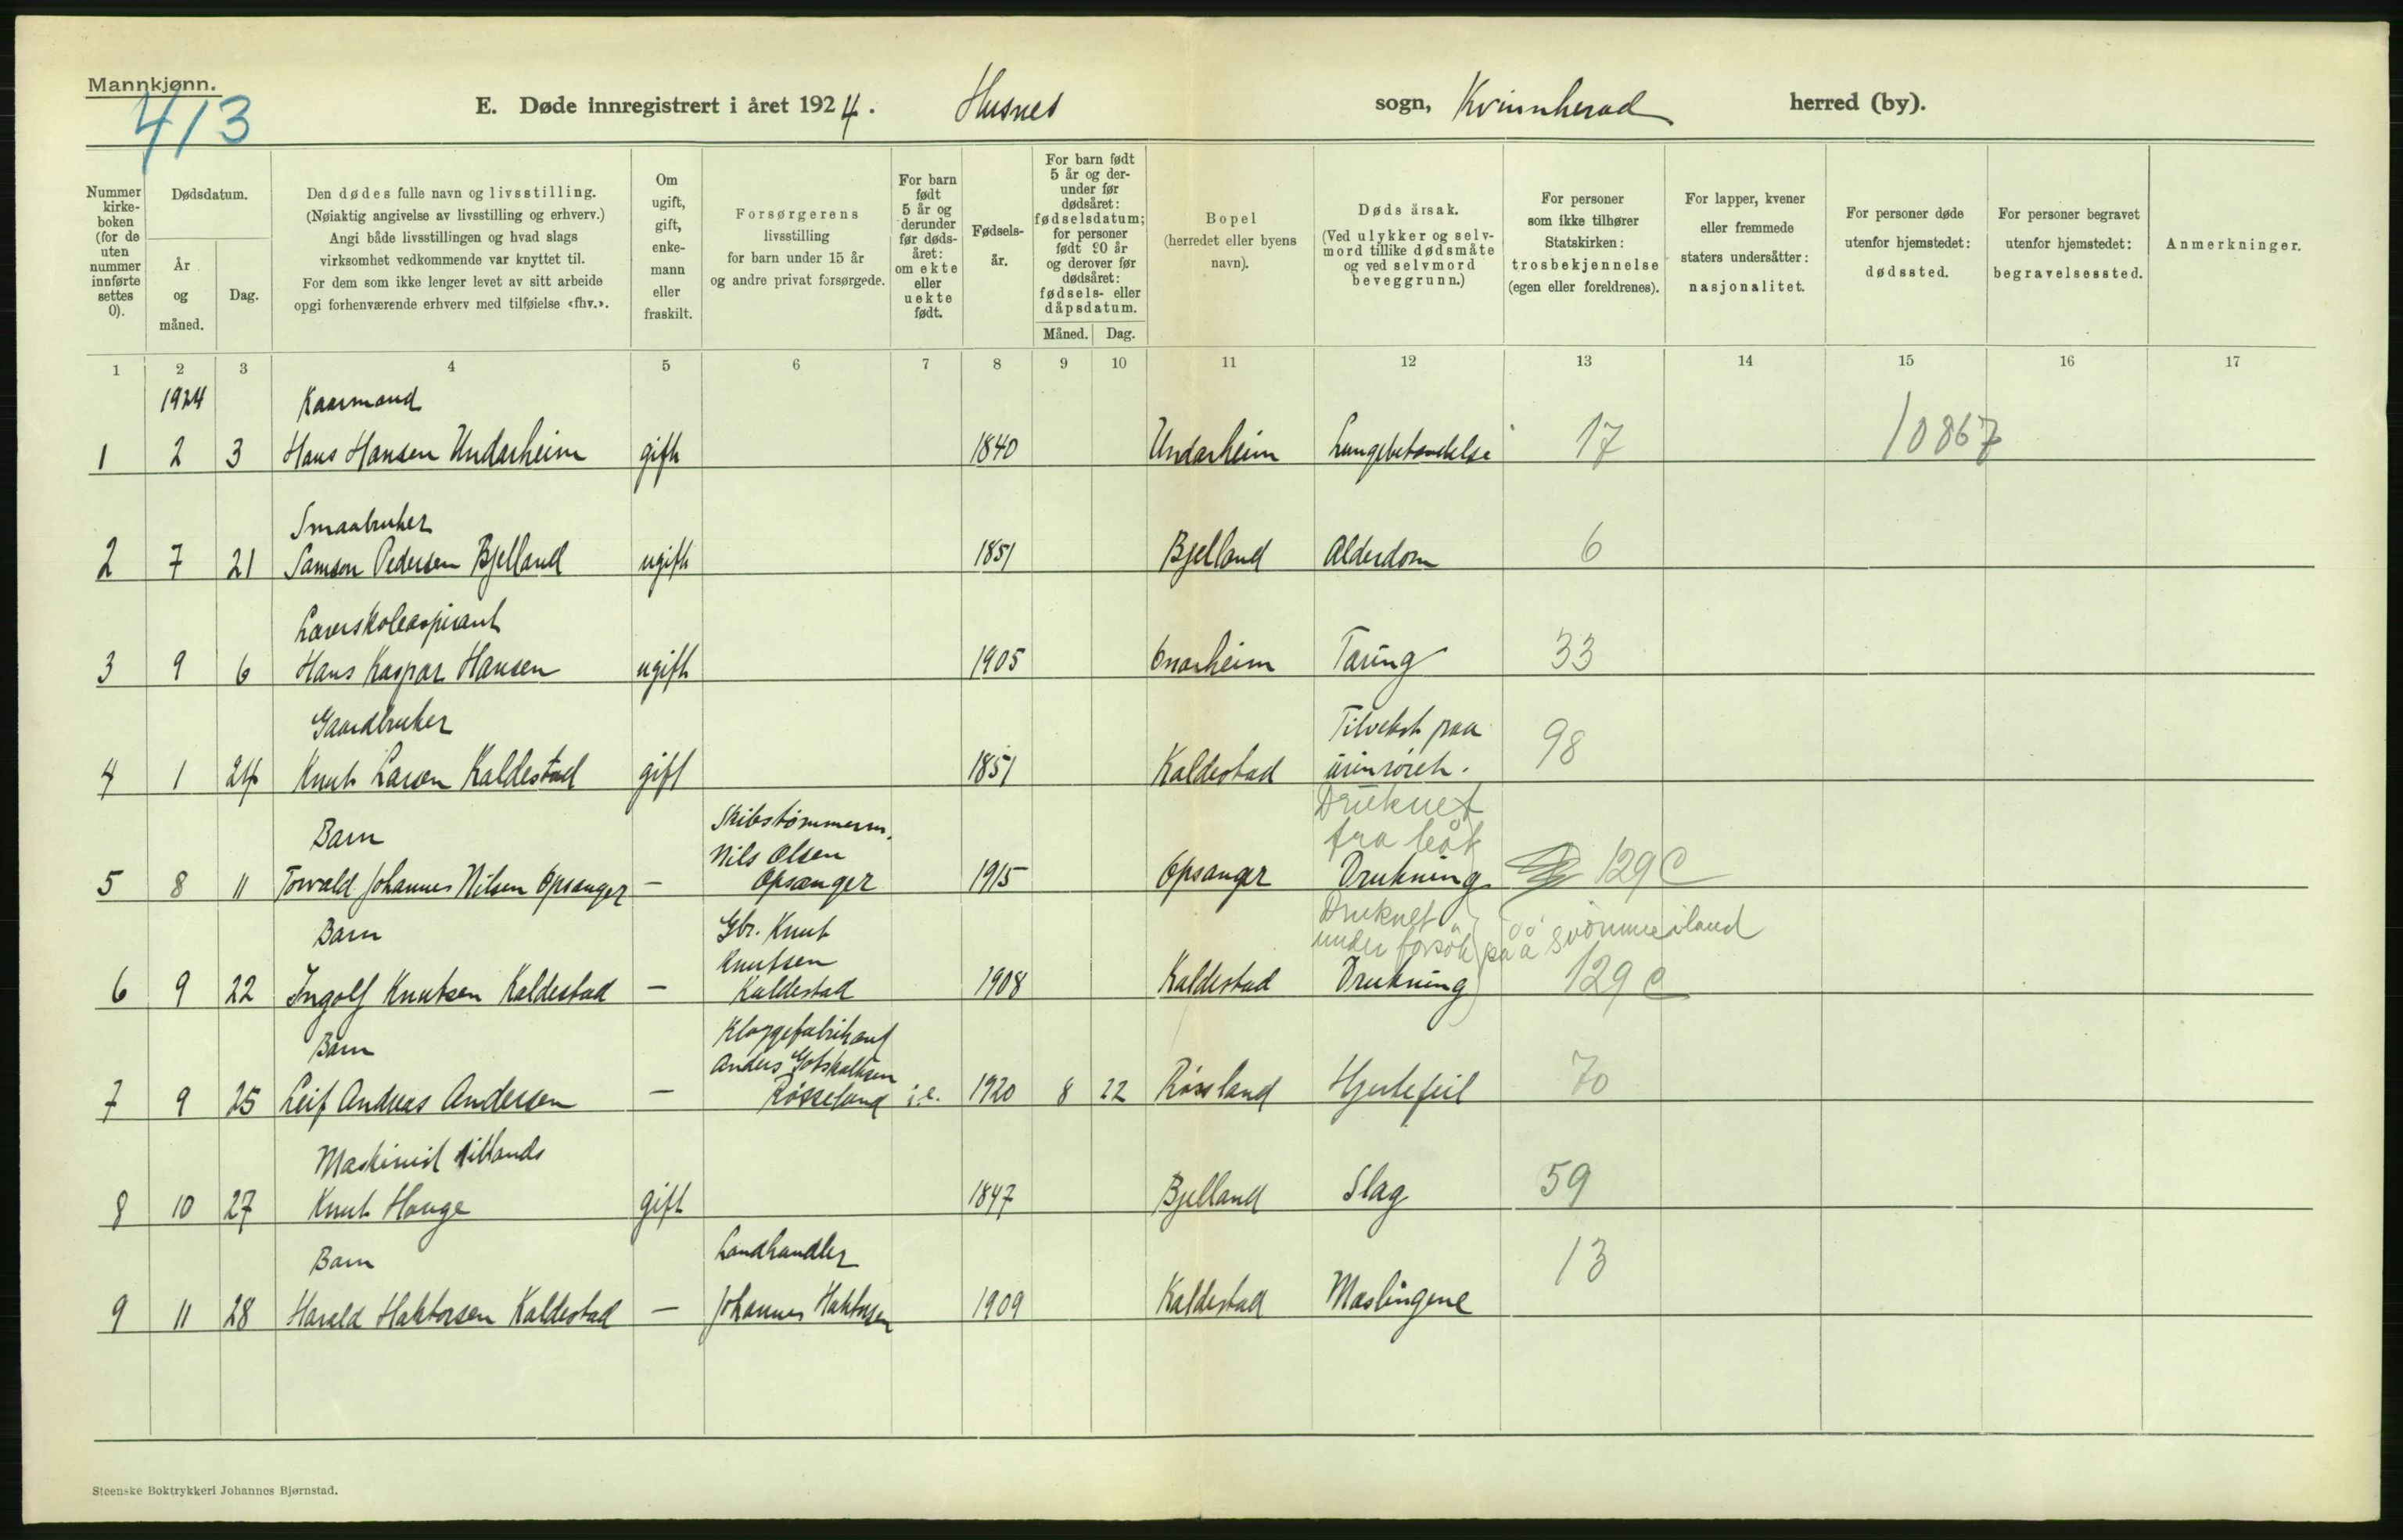 Mannkjønn.
413
E. Døde innregistrert i året 1924. Husnes sogn, Kvinnherad herred (by).
Nummer kirke-boken (for de uten nummer innførte settes 0).
Dødsdatum.
År og måned.
Dag.
Den dødes fulle navn og livsstilling.
(Nøiaktig angivelse av livsstilling og erhverv.)
Angi både livsstillingen og hvad slags
virksomhet vedkommende var knyttet til.
For dem som ikke lenger levet av sitt arbeide
opgi forhenværende erhverv med tilføielse «fhv.».
Om ugift, gift, enke-mann eller fraskilt.
Forsørgerens
livsstilling
for barn under 15 år
og andre privat forsørgede.
For barn født 5 år og derunder før døds-året: om ekte eller uekte født.
Fødsels-år.
For barn født 5 år og der-under før dødsåret: fødselsdatum; for personer født 90 år og derover før dødsåret: fødsels- eller dåpsdatum.
Måned. Dag.
Bopel
(herredet eller byens
navn).
Døds årsak.
(Ved ulykker og selv-
mord tillike dødsmåte
og ved selvmord
beveggrunn.)
For personer
som ikke tilhører
Statskirken:
trosbekjennelse
(egen eller foreldrenes).
For lapper, kvener
eller fremmede
staters undersåtter:
nasjonalitet.
For personer døde
utenfor hjemstedet:
dødssted.
For personer begravet
utenfor hjemstedet:
begravelsessted.
Anmerkninger.
1 2 3 4 5 6 7 8 9 10 11 12 13 14 15 16 17
1924 Kaarmand
1 2 3 Hans Hansen Undarheim gift 1840 Undarheim Lungebetændelse 17 10867
Smaabruker
2 7 21 Samson Pedersen Bjelland ugift 1851 Bjelland Alderdom 6
Lærerskoleaspirant
3 9 6 Hans Kaspar Hansen ugift 1905 Onarheim Tæring 33
Gaardbruker Tilvekst paa
4 1 24 Knut Larsen Kaldestad gift 1851 Kaldestad urinröret. 98
Druknet
fra båt
Barn Skibstömmerm.
Nils Olsen
5 8 11 Torvald Johannes Nilsen Opsanger — Opsanger 1915 Opsanger Drukning 129 C
Druknet
under forsök på å svömme iland
Barn Gbr. Knut
Knutsen
6 9 22 Ingolf Knutsen Kaldestad — Kaldestad 1908 Kaldestad Drukning 129 C
Barn Kloggefabrikant
Anders Gotskalksen
7 9 25 Leif Andreas Andersen — Røsseland i.e. 1920 8 22 Røssland Hjertefeil 70
Maskinist
8 10 27 Knut Hauge gift 1847 Bjelland Slag 59
Barn Landhandler
9 11 28 Harald Haktorsen Kaldestad — Johannes Haktorsen 1909 Kaldestad Mæslingene 13
Steenske Boktrykkeri Johannes Bjørnstad.